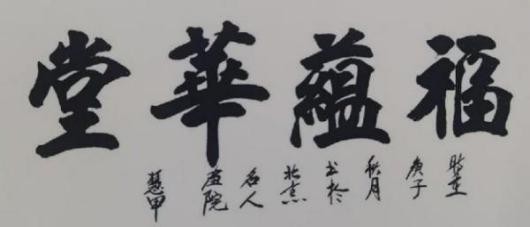 福蘊華堂
庚子
秋月
书於
北京
名人
画院
慧甲